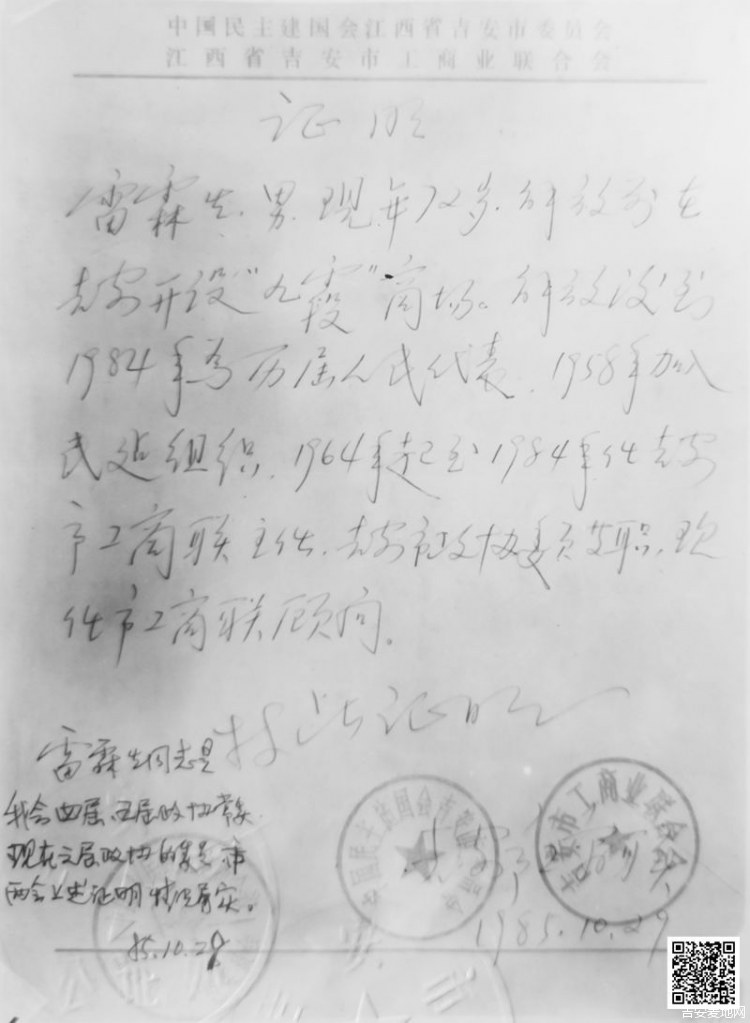 中国民主建国会江西省吉安市委员会
江西省吉安市工商业联合会
证明
雷霖生.男.现年72岁.解放前在
吉安开设“九霞”商场。解放后到
1984年为历届人民代表.1958年加入
民建组织.1964年起至1984年任吉安
市工商联主任.吉安市政协委员等职.现
任市工商联顾问。
特此证明
雷霖生同志是
我会四届、五届政协常委
现在六届政协的委员.市
两会上述证明情况属实。
85.10.29
中国民主建国会吉安
吉安市工商业联合会
1985.10.29
吉安爱地网